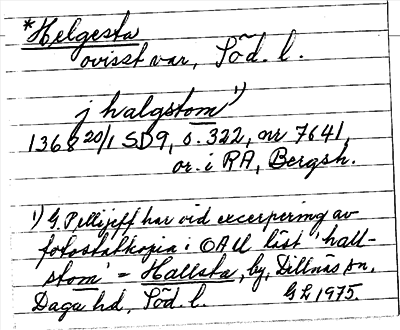 *Helgesta
ovisst var, Söd. l.
j halgstom 1)
1368 20/1 SD9, s. 322, nr 7641,
or. i RA, Bergsh.
1) G. Pellijeff har vid excerpering av
fotostatkopia i OAU läst 'hall-
stom' = Hallsta, by, Dillnäs sn,
Daga hd, Söd. l. GL 1975.